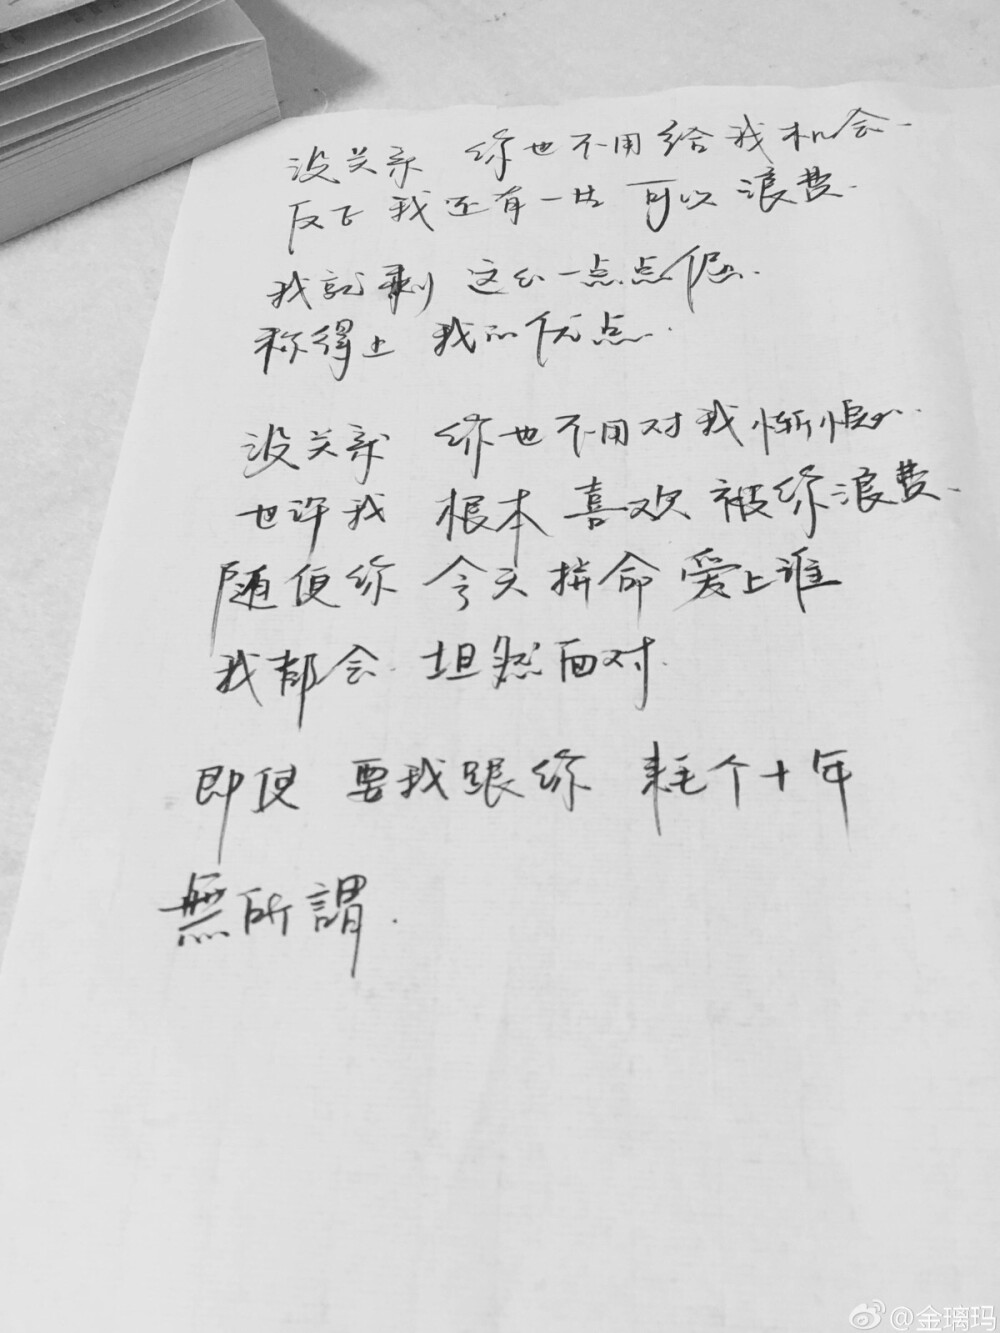 没关系 你也不用给我机会.
反正我还有一生 可以 浪费.
我就剩 这么一点点倔.
称得上 我的优点.
没关系 你也不用对我惭愧.
也许我 根本 喜欢 被你浪费.
随便你 今天拼命 爱上谁
我都会 坦然面对.
即使 要我跟你 耗个十年
無所謂.
@金璃玛